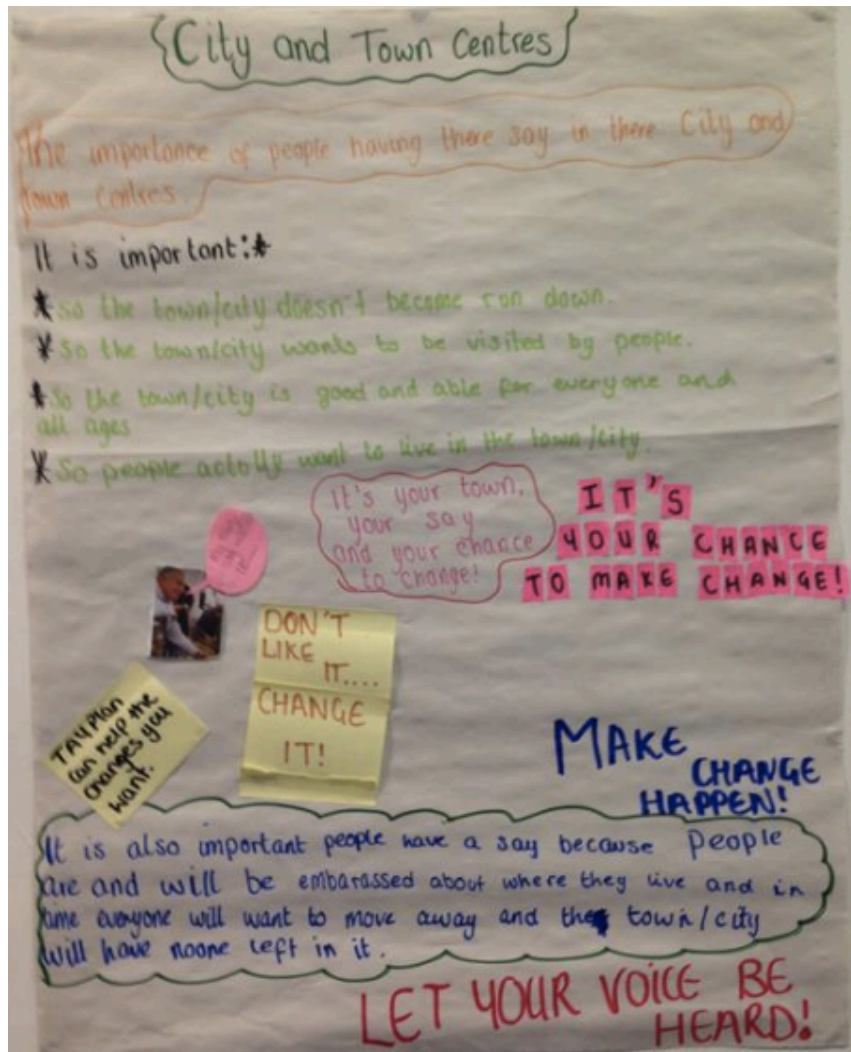 City and Town Centres
The importance of people having there say in there City and
town Centres.
It is important:*
* So the town/city doesn't become run down.
* So the town/city wants to be visited by people.
* So the town/city is good and able for everyone and
all ages
* So people actolly want to live in the town/city.
It's your town,
your say
and your chance
to change!
IT'S
YOUR CHANCE
TO MAKE CHANGE!
DON'T
LIKE
IT....
CHANGE
IT!
TAYplan
can help the
changes you
want.
MAKE
CHANGE
HAPPEN!
It is also important people have a say because People
are and will be embarassed about where they live and in
time everyone will want to move away and the town/city
will have noone left in it.
LET YOUR VOICE BE
HEARD!